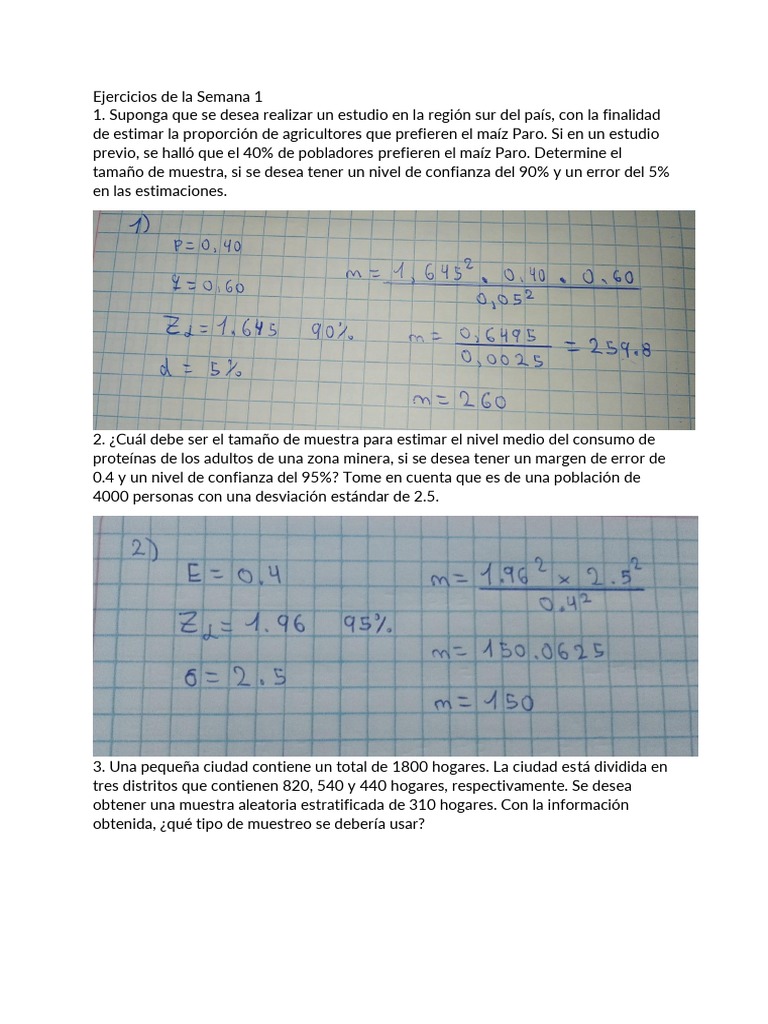 Ejercicios de la Semana 1
1. Suponga que se desea realizar un estudio en la región sur del país, con la finalidad
de estimar la proporción de agricultores que prefieren el maíz Paro. Si en un estudio
previo, se halló que el 40% de pobladores prefieren el maíz Paro. Determine el
tamaño de muestra, si se desea tener un nivel de confianza del 90% y un error del 5%
en las estimaciones.
1)
P=0,40
q=0,60
Zα=1.645 90%
d = 5%
m= 1,645² . 0,40 . 0.60
0,05²
m= 0,6495 = 259.8
0,0025
m=260
2. ¿Cuál debe ser el tamaño de muestra para estimar el nivel medio del consumo de
proteínas de los adultos de una zona minera, si se desea tener un margen de error de
0.4 y un nivel de confianza del 95%? Tome en cuenta que es de una población de
4000 personas con una desviación estándar de 2.5.
2)
E=0.4
Zα=1.96 95%
σ=2.5
m= 1.96² x 2.5²
0.4²
m= 150.0625
m= 150
3. Una pequeña ciudad contiene un total de 1800 hogares. La ciudad está dividida en
tres distritos que contienen 820, 540 y 440 hogares, respectivamente. Se desea
obtener una muestra aleatoria estratificada de 310 hogares. Con la información
obtenida, ¿qué tipo de muestreo se debería usar?